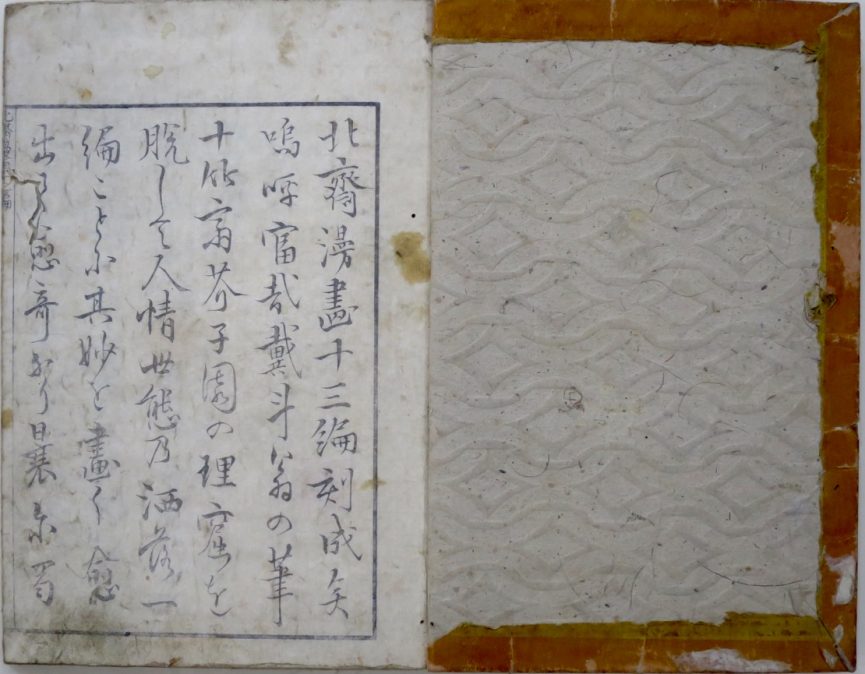 北齋漫畫十三編刻成矣
嗚呼富哉戴斗翁の筆
十竹齋芥子園の理窟を
脱して人情世態乃洒落一
編ことに其妙を畫く愈
出て愈奇なり曩に蜀